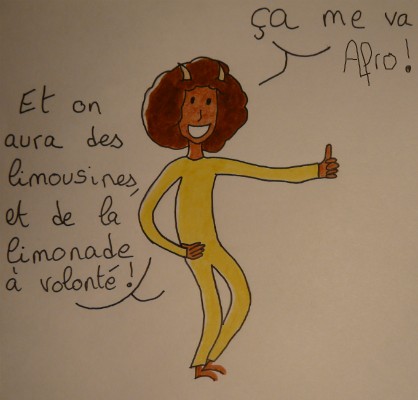 ça me va
Afro!
Et on
aura des
limousines,
et de la
limonade
à volonté!